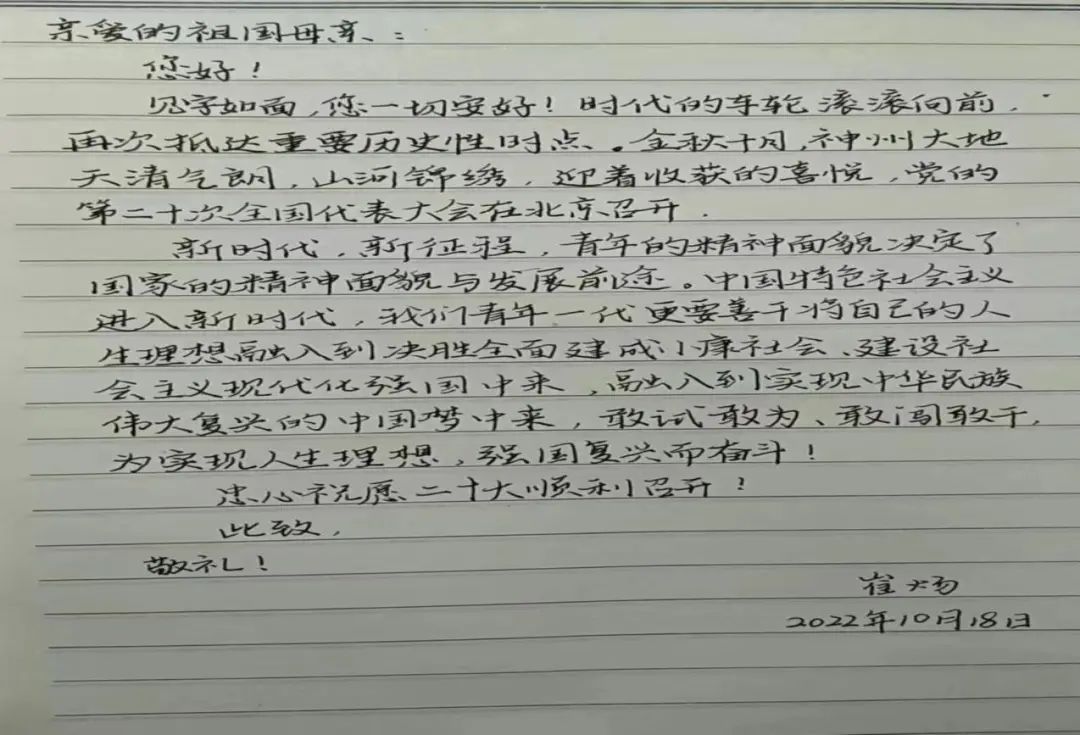 亲爱的祖国母亲：
您好！
见字如面，您一切安好！时代的车轮滚滚向前，
再次抵达重要历史性时点。金秋十月，神州大地
天清气朗，山河锦绣，迎着收获的喜悦，党的
第二十次全国代表大会在北京召开．
新时代，新征程，青年的精神面貌决定了
国家的精神面貌与发展前途。中国特色社会主义
进入新时代，我们青年一代更要善于将自己的人
生理想融入到决胜全面建成小康社会、建设社
会主义现代化强国中来，融入到实现中华民族
伟大复兴的中国梦中来，敢试敢为、敢闯敢干，
为实现人生理想，强国复兴而奋斗！
忠心祝愿二十大顺利召开！
此致，
敬礼！
崔炀
2022年10月18日